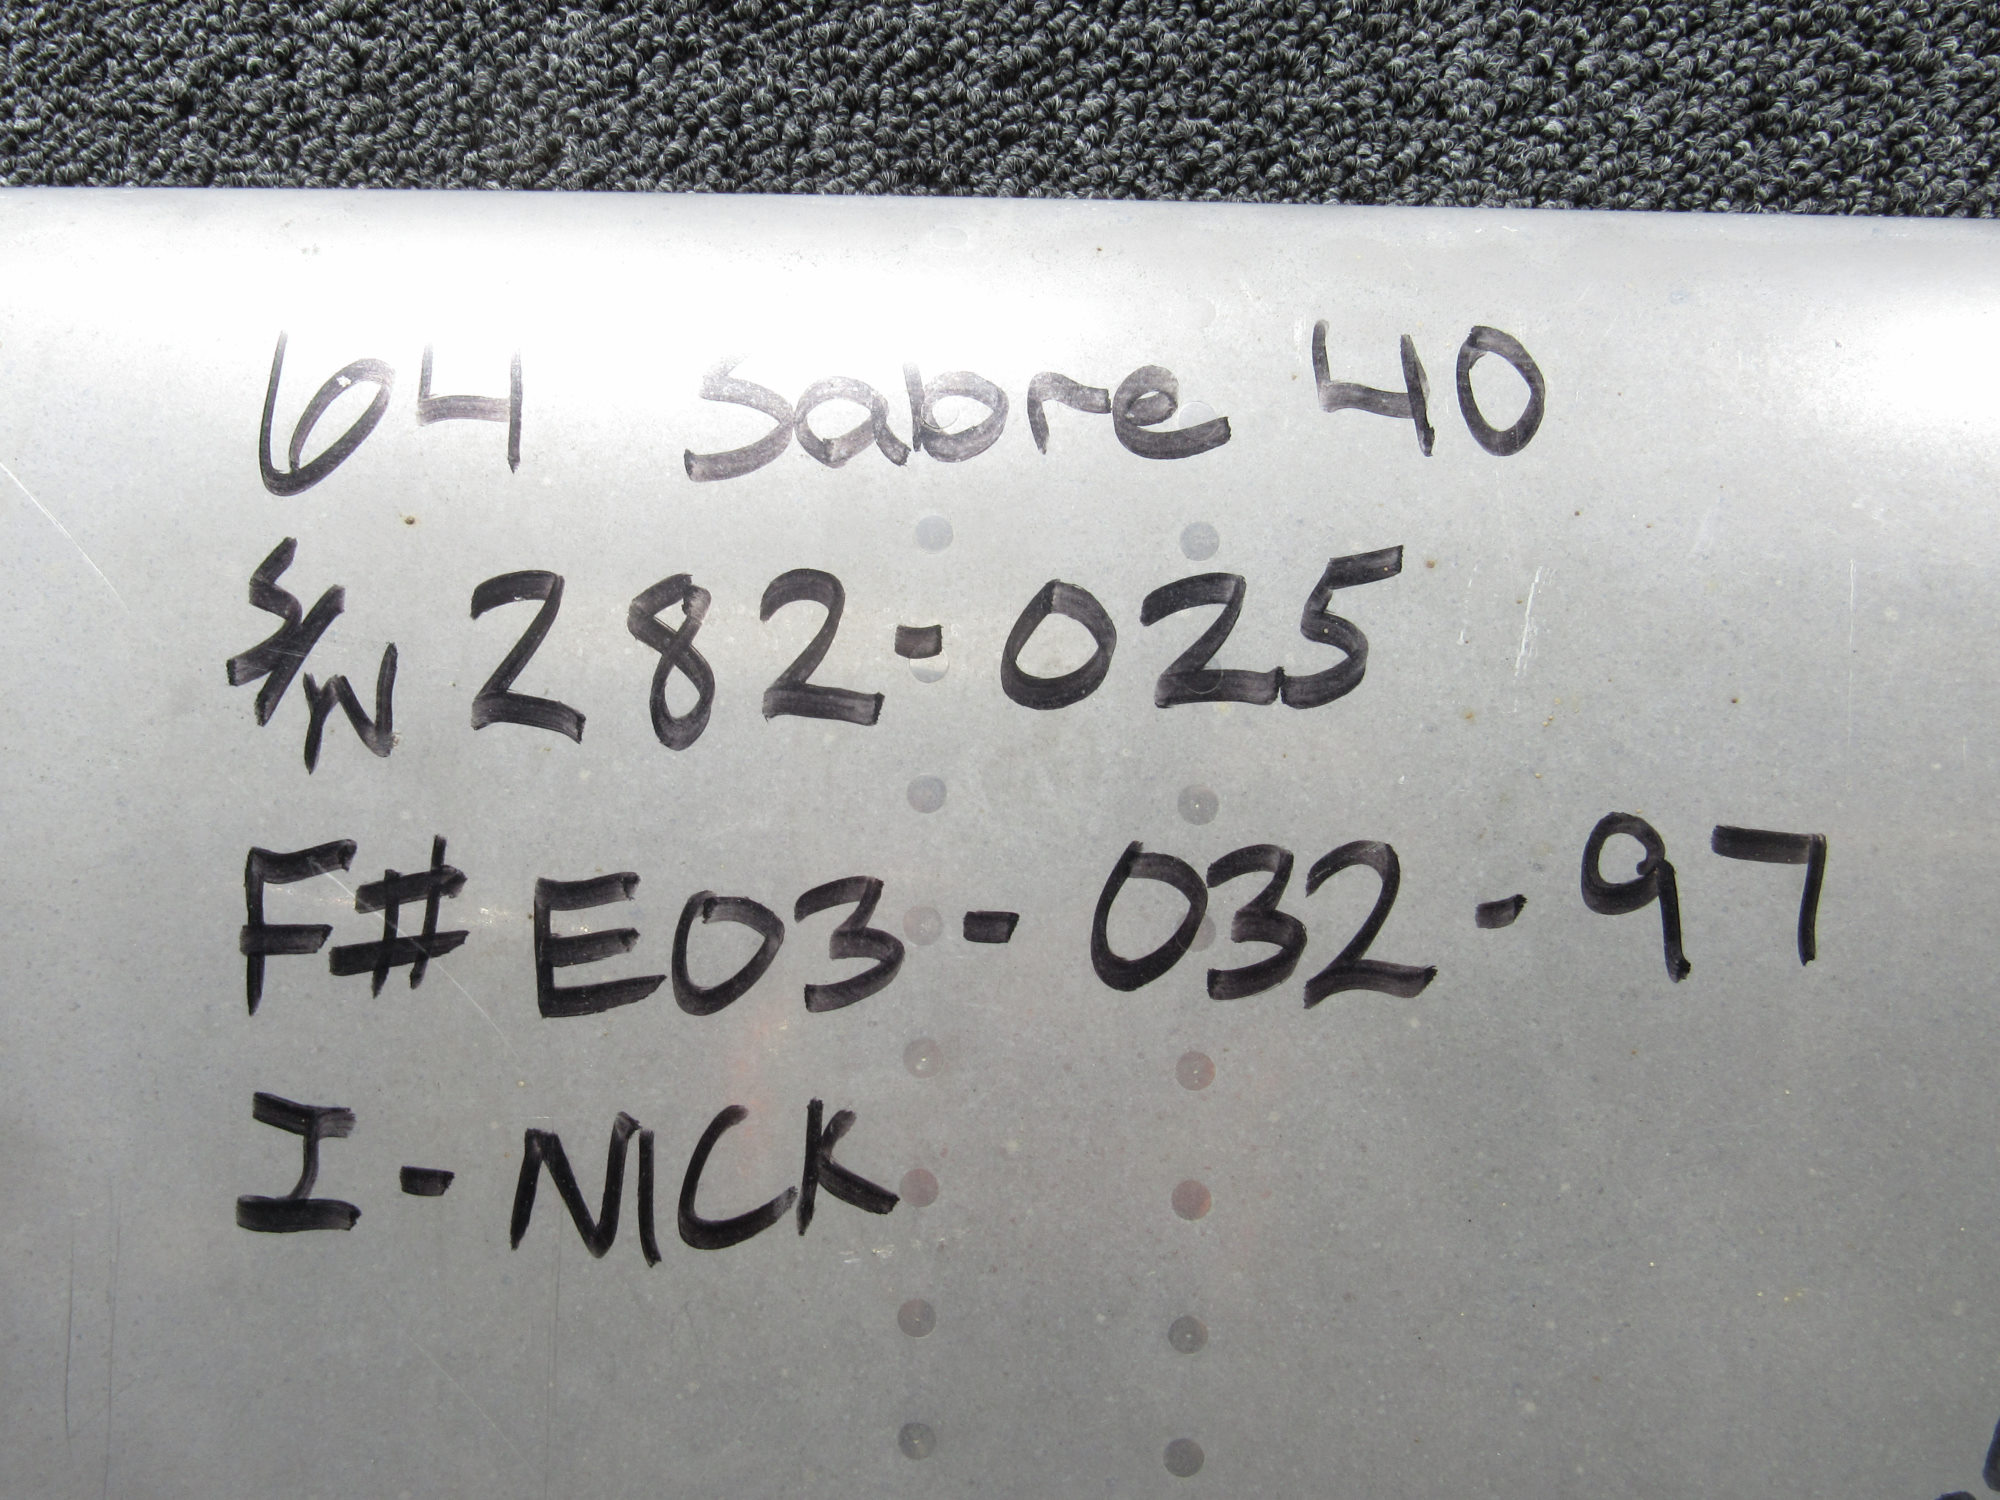 64 Sabre 40
S/N 282-025
F# E03-032-97
I-NICK